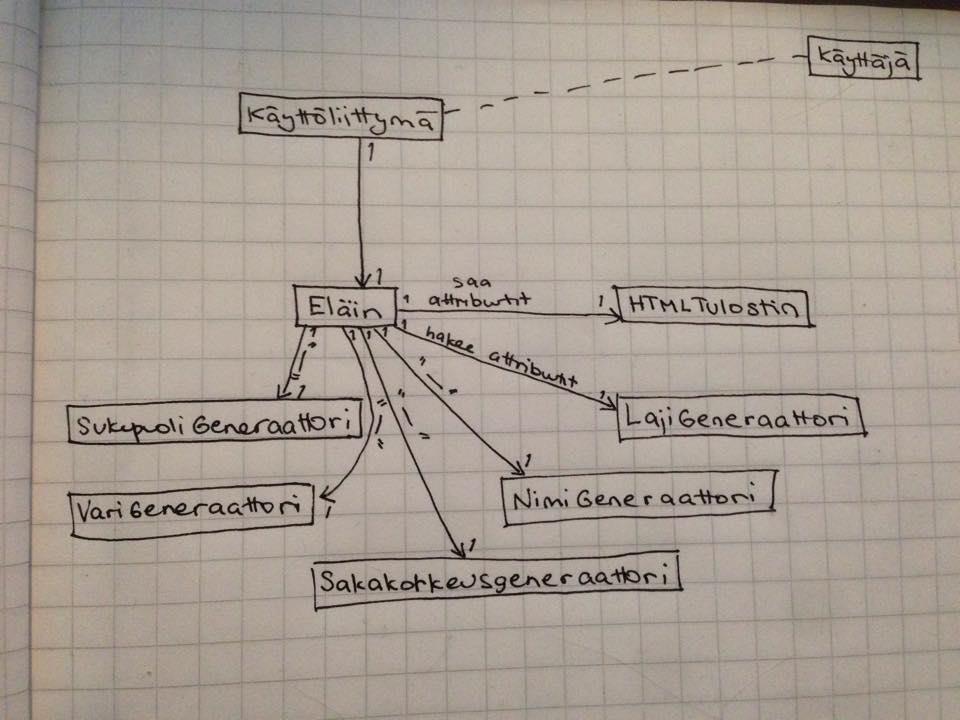 Käyttäjä
Käyttöliittymä
1
1
saa
attribuutit
Eläin
1
1
HTMLTulostin
1
hakee attribuutit
1
LajiGeneraattori
1
" — "
1
SukupuoliGeneraattori
1
" — "
1
VariGeneraattori
1
" — "
1
NimiGeneraattori
1
" — "
1
Sakakorkeusgeneraattori